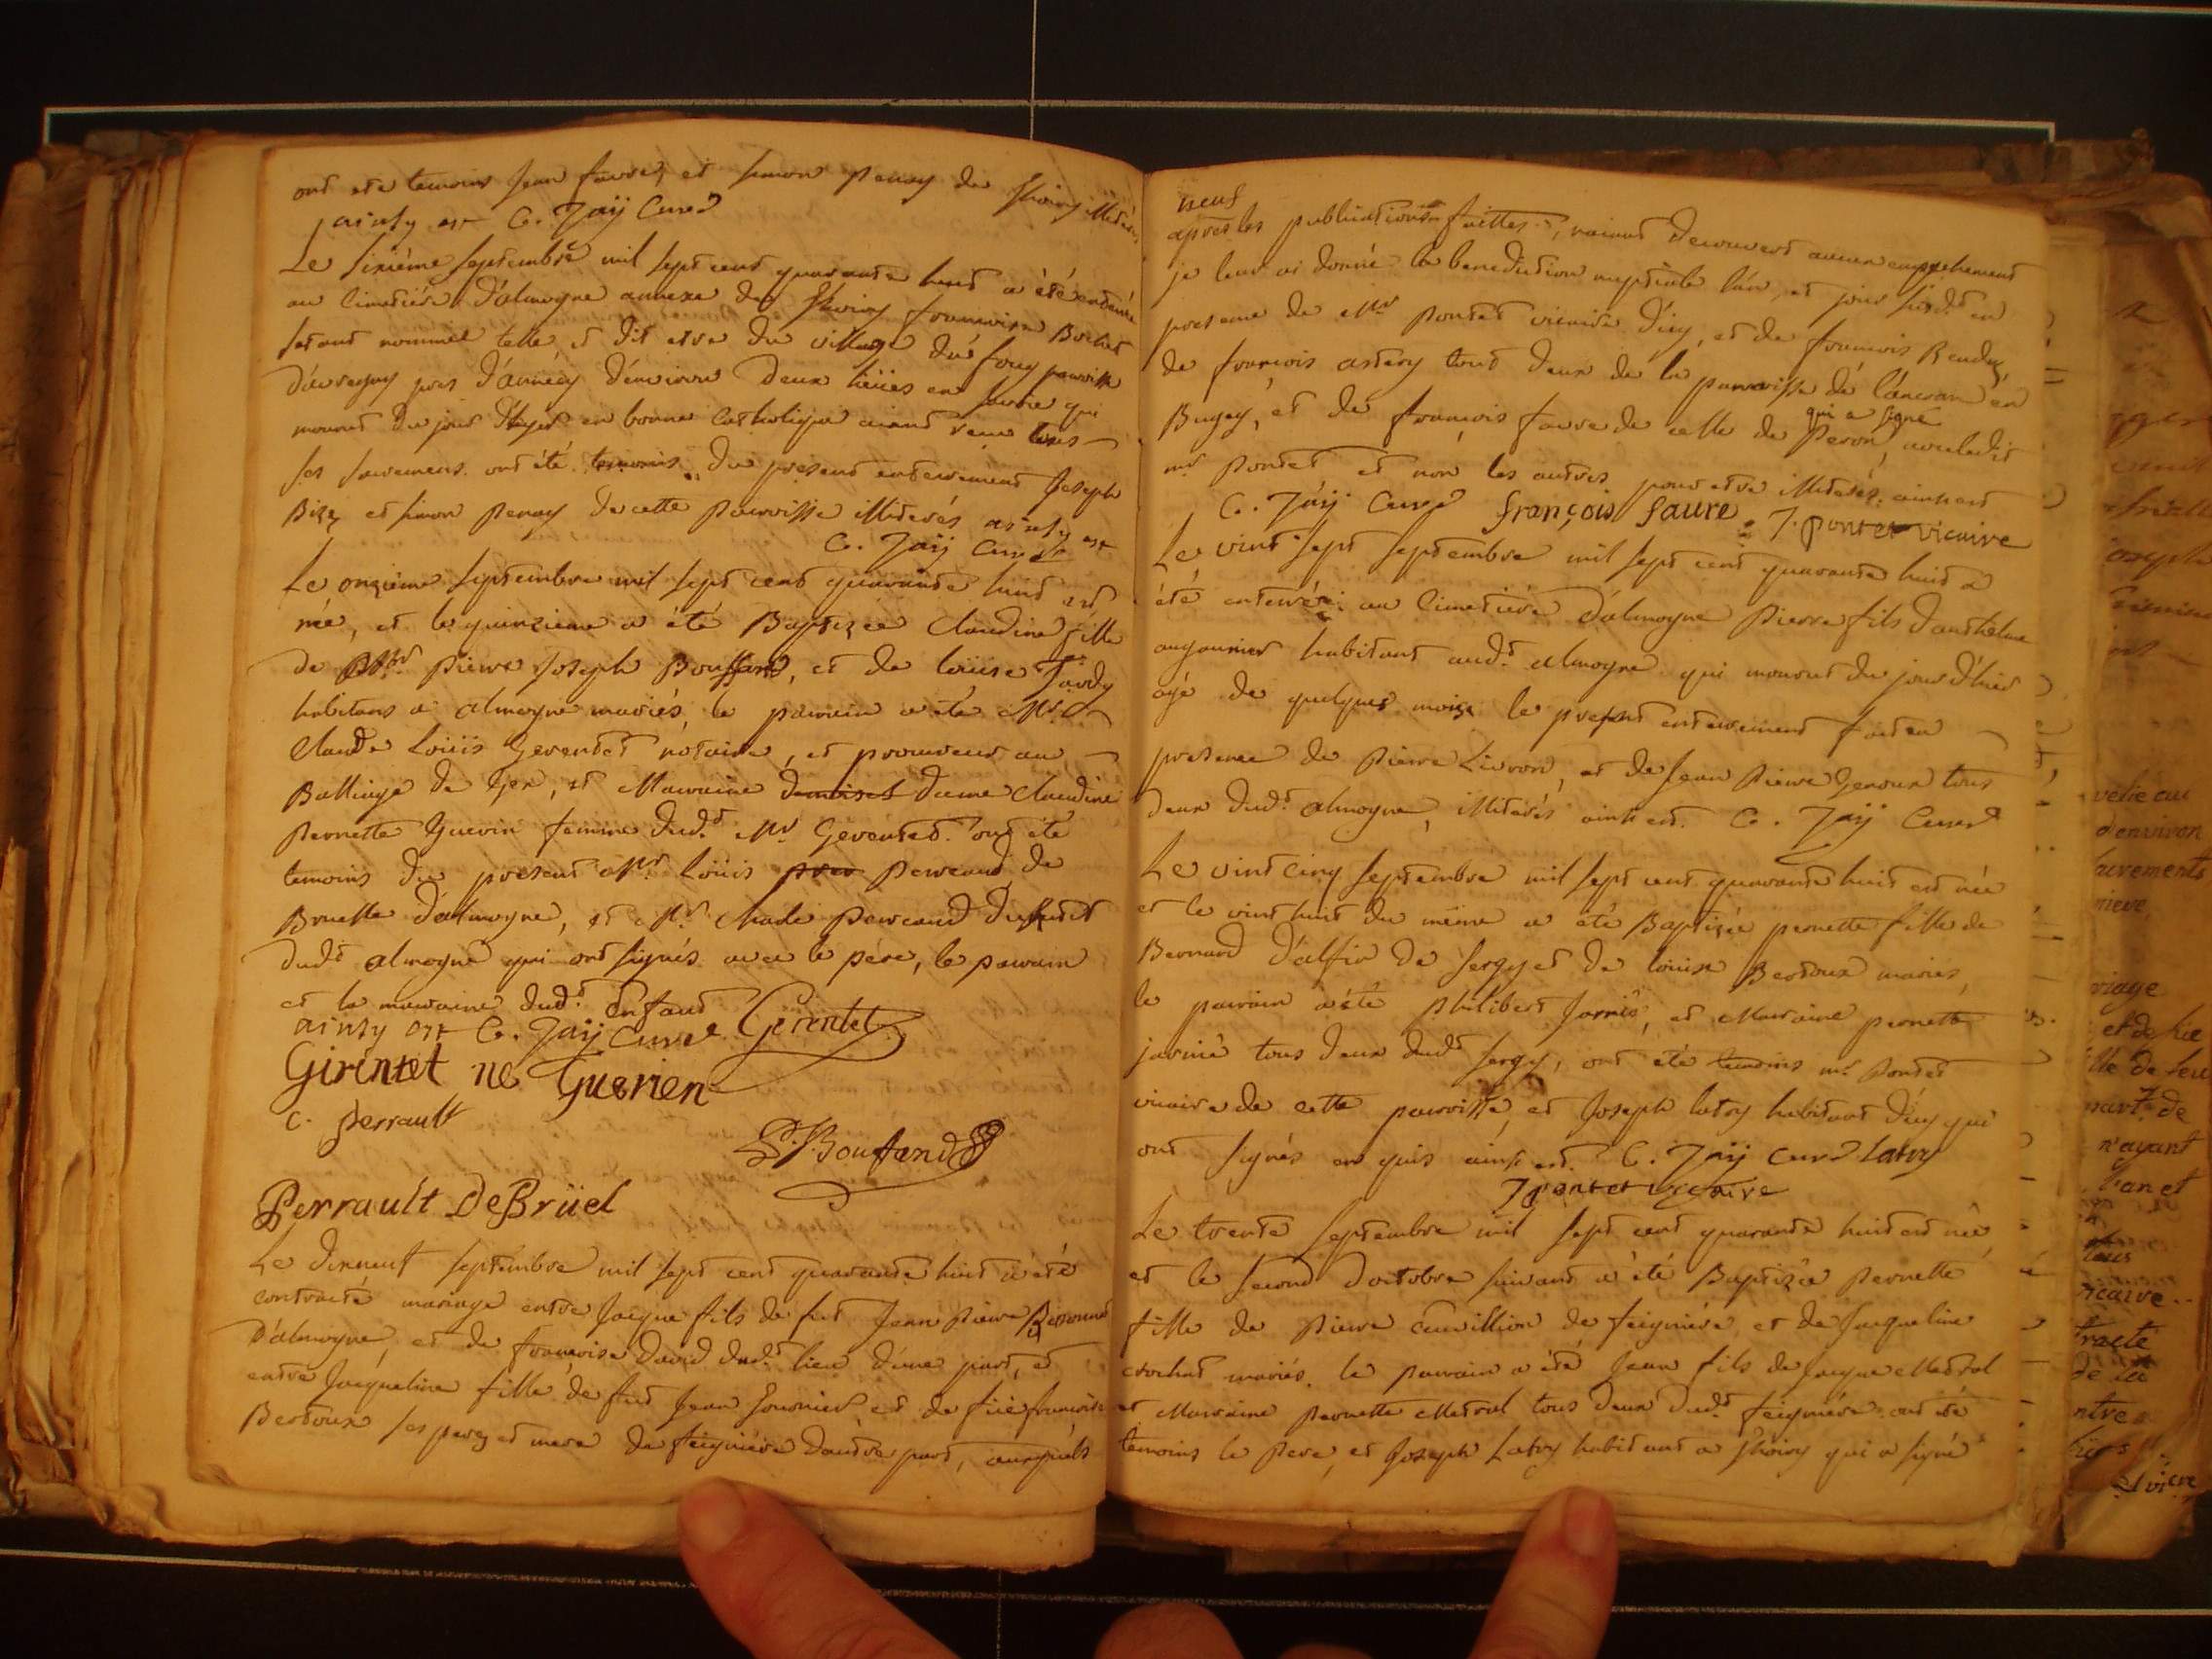 ont été temoins Jean favre, et simon penay de Thoiry illiterés
ainsy est C. Jaÿ Curé
Le sixiéme septembre mil sept cent quarante huit a été enterrée
au Cimetiére d'almogne annexe de Thoiry francoise Bochet
setant nommée telle et dit etre du village du foug parroisse
pres d'annecy d'environ deux lieües en savoie qui
mourut du jour d'hyer en bonne Catholique aiant recu tous
ses sacremens. ont été temoins du present enterrement Joseph
Bizy et simon penay de cette parroisse illiterés ainsy est
C. Jaÿ Curé
Le onzieme septembre mil sept cent quarante huit est
née, et le quinzieme a été Baptizée Claudine fille
de Mr pierre Joseph Bouffand, et de loüise Tardy
habitans a almogne mariés, le parrain a été Mr
Claude Loüis Gerentet notaire, et procureur au
Balliage de Gex, et Marraine dame Claudine
pernette Guerin femme dud.t Mr Gerentet. ont été
temoins du présent Mr. Loüis perreaud de
Bruelle d'almogne, et Mr. Charle perreaud
dudt almogne qui ont signés avec le pére, le parrain
et la marraine dud.t Enfant
ainsy est C. Jaÿ Curé Gerentet
Girentet ne Guerien
C. perrault
P. J. Boufand
Perrault DeBrüel
Le dixneuf septembre mil sept cent quarante huit a été
contracté mariage entre Jacque fils de fut Jean pierre
D'almogne, et de francoise David dud.t lieu d'une part, et
entre Jacqueline fille de fut Jean fournier, et de füe francoise
Bertoux ses pere et mere de feigniére d'autre part, auxquels
neuf
apres les publications faittes, n'aiant decouvert aucun empechement
je leur ai donné la benediction nuptiale l'an, et jour susd.t en
presence de Mr pontet vicaire d'icy, et de francois Rendu,
de francois astery tout deux de la parroisse de lancran en
Bugey, et de francois favre de celle de peron, qui a signé avec ledit
mr pontet et non les autres pour etre illiterés. ainsi est
C. Jaÿ Curé françois faure J. pontet vicaire
Le vint sept septembre mil sept cent quarante huit a
été enterré au Cimetiére d'almogne pierre fils d'anthelme
habitant aud.t almogne qui mourut du jour d'hier
agé de quelques mois, le present enterrement fait en
presence de pierre Livron, et de Jean pierre Genoux tous
deux dud.t almogne, illiterés ainsi est. C. Jaÿ Curé
Le vint cinq septembre mil sept cent quarante huit est née
et le vint huit du méme a été Baptizée pernette fille de
Bernard D'alfin de sergy et de loüise Bertoux mariés,
le parrain a été philibert Jarnié, et Marraine pernette
jarnié tous deux dudt sergy, ont été temoins mr. pontet
vicaire de cette parroisse, et Joseph latry habitant d'icy qui
ont signés en quis ainsi est. C. Jaÿ Curé latry
J pontet vicaire
Le trente septembre mil sept cent quarante huit est née
et le second d'octobre suivant a été Baptizée pernette
fille de pierre cuvillion de feigniére et de Jacqueline
crochat mariés. le parrain a été Jean fils de Jacque Metral
et Marraine pernette Metral tous deux dud.t feigniére ont été
temoins le pere, et Joseph Latry habitant a Thoiry qui a signé